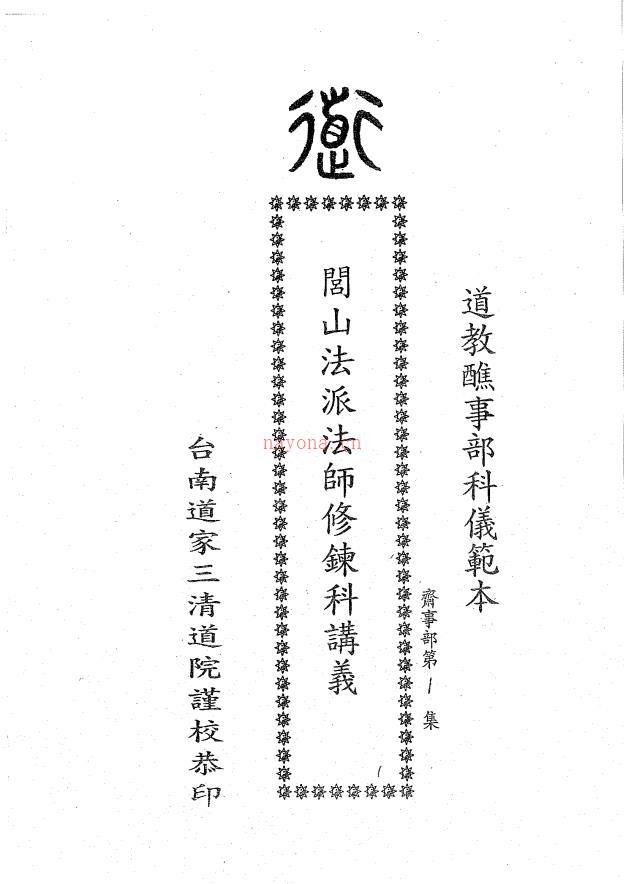 道教醮事部科儀範本
齋事部第1集
閭山法派法師修鍊科講義
台南道家三清道院謹校恭印
nayona.cn